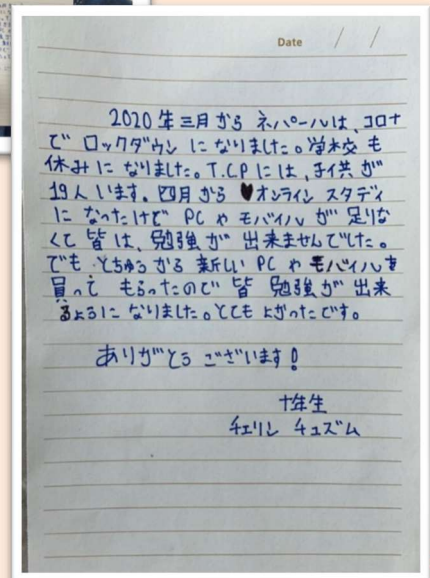 Date / /
2020 年三月から ネパールは、コロナ
で ロックダウン になりました。学校も
休みになりました。T.CPには、子供が
19人います。四月から ♥オンライン スタディ
になったけど PC や モバイル が 足りな
くて 皆は、勉強が 出来ませんでした。
でも とちゅうから 新しい PC や モバイルを
買って もらったので 皆 勉強が 出来
るように なりました。とても よかったです。
ありがとう ございます!
十年生
チェリン チュズム